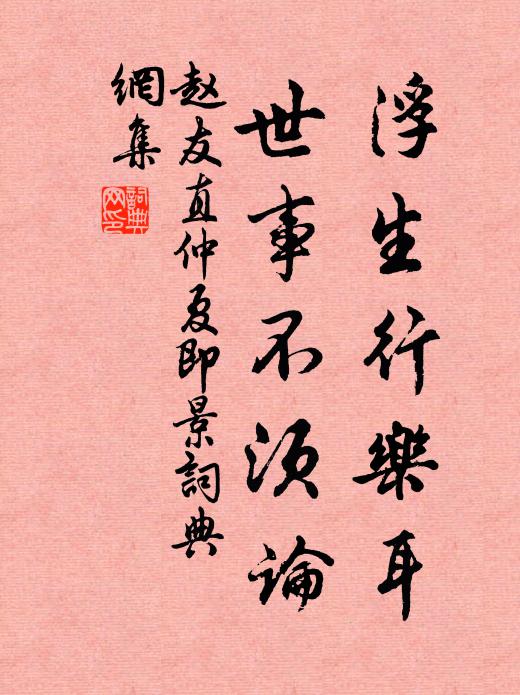 浮生行樂耳
世事不須論
赵友直仲夏即景詞典
網集
詞典
网印